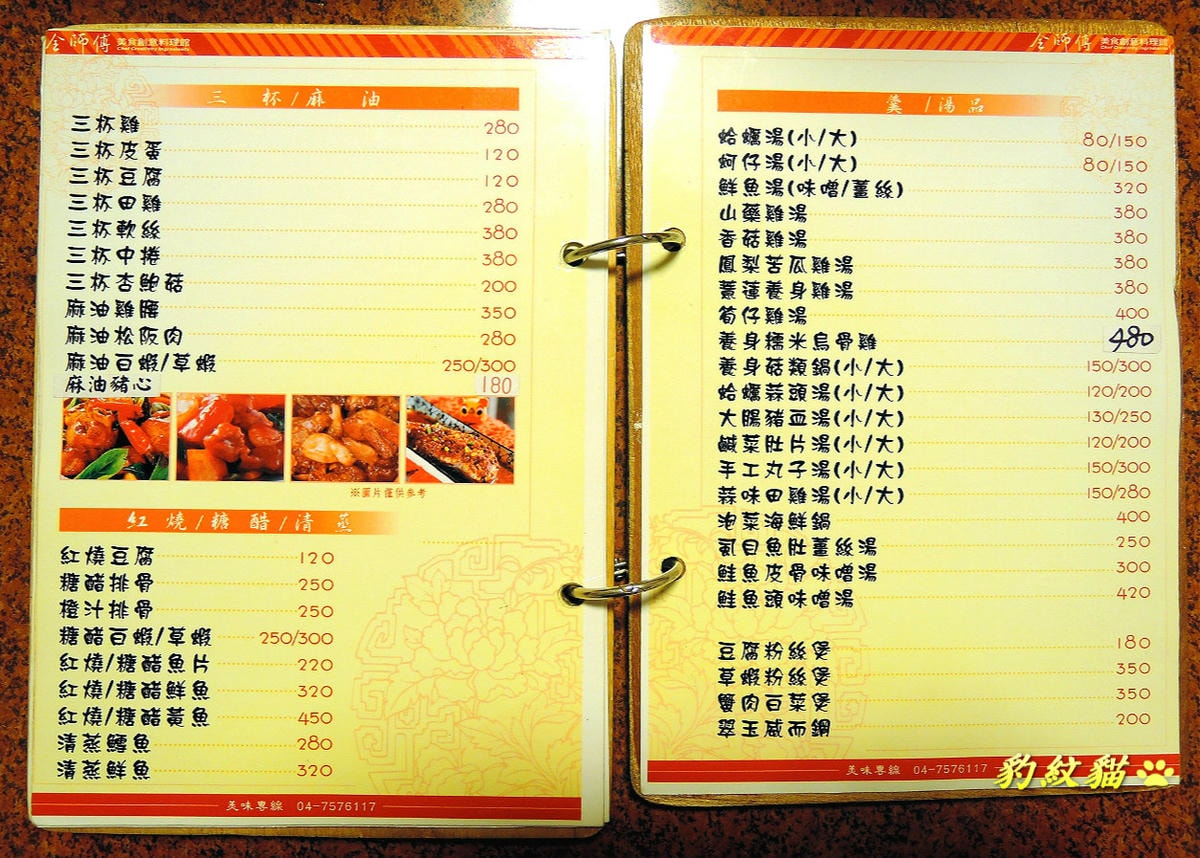 金師傅 美食創意料理館
Chef Creativity Ingredients
三 杯/麻 油
三杯雞 280
三杯皮蛋 120
三杯豆腐 120
三杯田雞 280
三杯軟絲 380
三杯中捲 380
三杯杏鮑菇 200
麻油雞腰 350
麻油松阪肉 280
麻油白蝦/草蝦 250/300
麻油豬心 180
※圖片僅供參考
紅 燒/糖 醋/清 蒸
紅燒豆腐 120
糖醋排骨 250
橙汁排骨 250
糖醋白蝦/草蝦 250/300
紅燒/糖醋魚片 220
紅燒/糖醋鮮魚 320
紅燒/糖醋黃魚 450
清蒸鱈魚 280
清蒸鮮魚 320
美味專線 04-7576117
金師傅 美食創意料理館
Chef Creativity Ingredients
羹 /湯品
蛤蠣湯(小/大) 80/150
蚵仔湯(小/大) 80/150
鮮魚湯(味噌/薑絲) 320
山藥雞湯 380
香菇雞湯 380
鳳梨苦瓜雞湯 380
薏蓮養身雞湯 380
筍仔雞湯 400
養身糯米烏骨雞 480
養身菇類鍋(小/大) 150/300
蛤蠣蒜頭湯(小/大) 120/200
大腸豬血湯(小/大) 130/250
鹹菜肚片湯(小/大) 120/200
手工丸子湯(小/大) 150/300
蒜味田雞湯(小/大) 150/280
泡菜海鮮鍋 400
虱目魚肚薑絲湯 250
鮭魚皮骨味噌湯 300
鮭魚頭味噌湯 420
豆腐粉絲煲 180
草蝦粉絲煲 350
蟹肉白菜煲 350
翠玉威而鋼 200
美味專線 04-7576117
豹紋貓